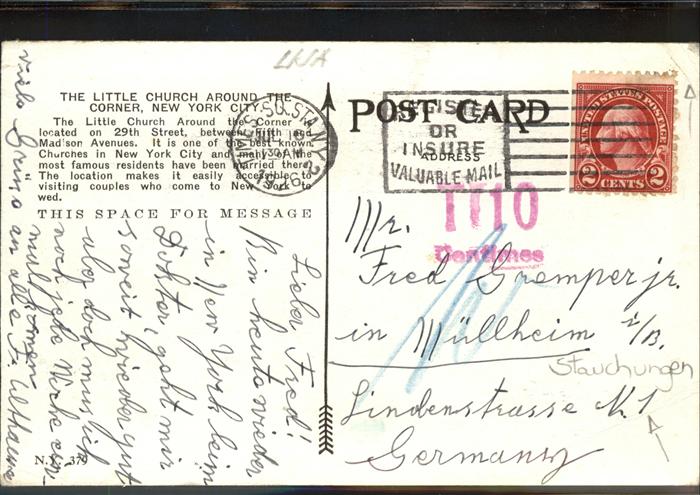 USA
THE LITTLE CHURCH AROUND THE
CORNER, NEW YORK CITY.
The Little Church Around the Corner is
located on 29th Street, between Fifth and
Madison Avenues. It is one of the best known
Churches in New York City and many of the
most famous residents have been married there.
The location makes it easily accessible to
visiting couples who come to New York to
wed.
THIS SPACE FOR MESSAGE
Lieber Fred!
Bin heute wieder
in New York beim
Doktor, geht mir
soweit wieder gut
aber doch muss ich
noch jede Woche ein-
mal kommen
viele Grüsse an alle
N.Y. 379
POST CARD
ADDRESS
REGISTER
OR
INSURE
VALUABLE MAIL
SQ. STA. N.Y.
UNITED STATES POSTAGE
2 CENTS 2
T 10
Centimes
Mr.
Fred Gremper jr.
in Müllheim i/B.
Stauchungen
Lindenstrasse N. 1
Germany